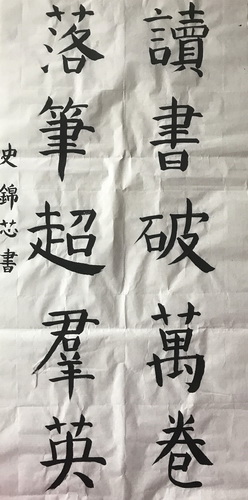 讀書破萬卷
落筆超羣英
史錦芯書